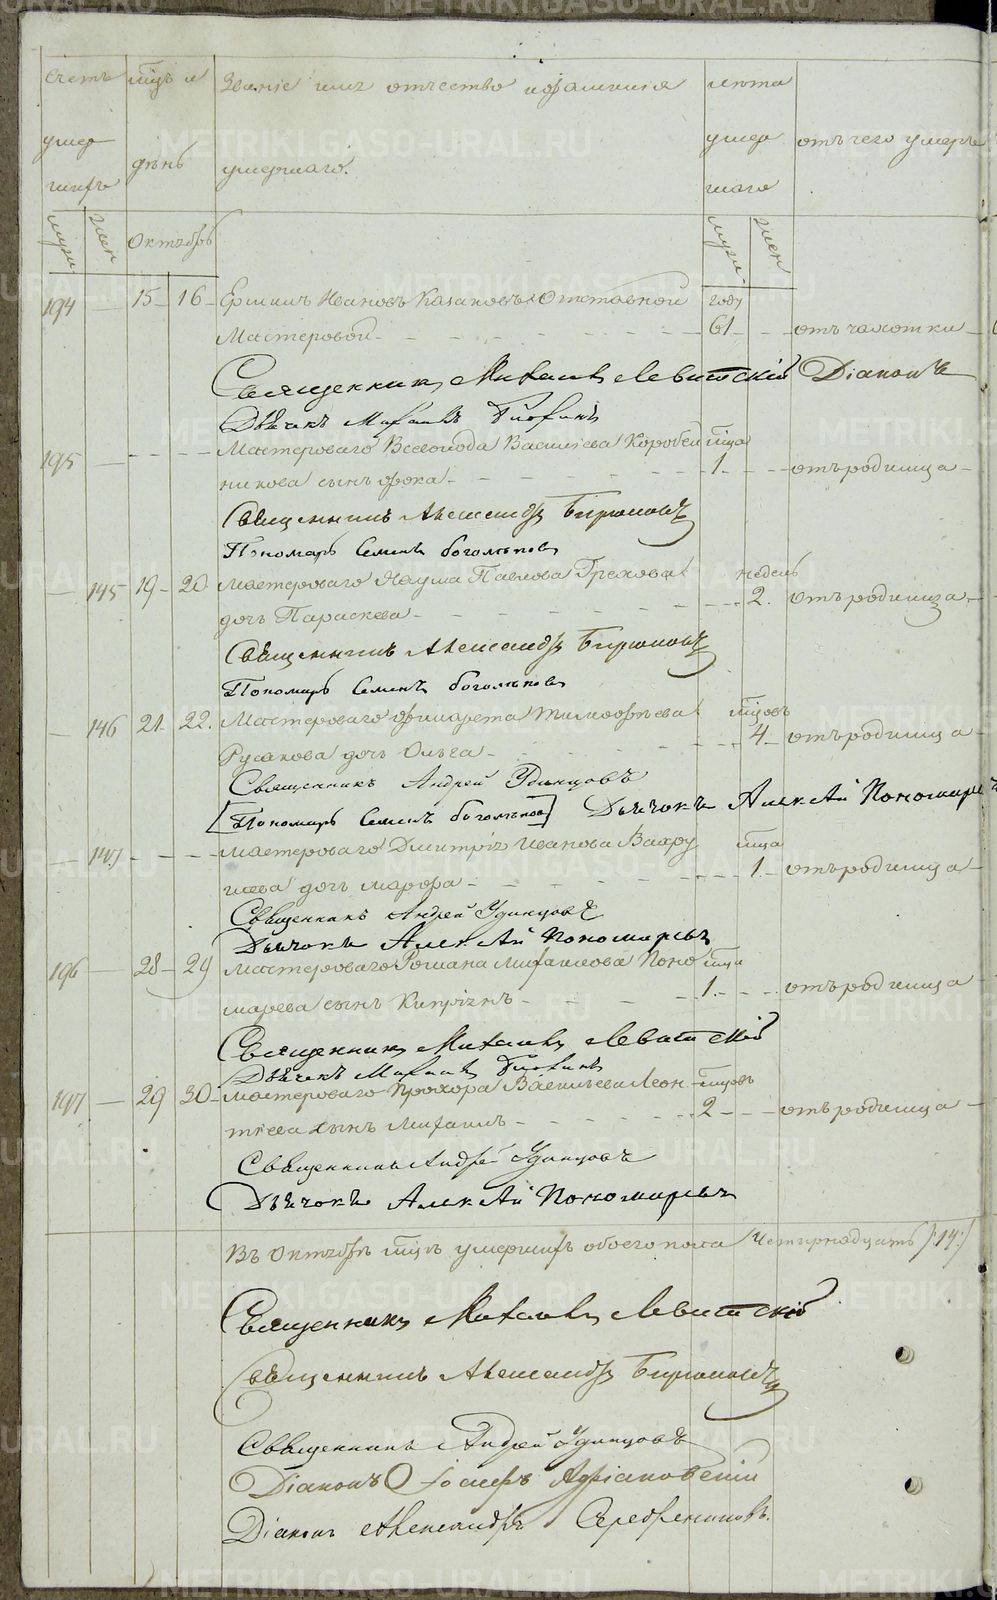 Счетъ мцъ и Званіе имя отчество и фамилия лѣта
умер день умершаго. умер отъ чего умеръ
шихъ шаго
муж жен Октябрь муж жен
194 15 16 Ермилъ Ивановъ Казаковъ Отставной году
Мастеровой 61 отъ чахотки
Священникъ Михаилъ Левитскій Діаконъ
Дьячекъ Михаилъ
195 Мастероваго Всеволода Васильева Коробей мца
никова сынъ Фока 1. отъ родимца
Священникъ Александръ Бирюковъ
Пономарь Семенъ Боголѣповъ
145 19 20 Мастероваго Наума Павлова Грехова недель
дочь Параскева 2. отъ родимца
Священникъ Александръ Бирюковъ
Пономарь Семенъ Боголѣповъ
146 21 22. Мастероваго Филарета Тимофѣева мцовъ
Русакова дочь Ольга 4 отъ родимца
Священникъ Андрей Удинцовъ
[Пономарь Семенъ Боголѣповъ] Дьячокъ Алексѣй Пономаревъ
147 Мастероваго Дмитрія Иванова Вахру мца
шева дочь Марфа 1. отъ родимца
Священникъ Андрей Удинцовъ
Дьячокъ Алексѣй Пономаревъ
196 28 29 Мастероваго Романа Михаилова Поно мца
марева сынъ Кипріянъ 1. отъ родимца
Священникъ Михаилъ Левитскій
Дьячекъ Михаилъ
197 29 30 Мастероваго Прохора Васильева Леон мцовъ
тіева сынъ Михаилъ 2 отъ родимца
Священникъ Андрей Удинцовъ
Дьячокъ Алексѣй Пономаревъ
Въ Октябрѣ мцѣ умершихъ обоего пола Четырнадцать /:14:/
Священникъ Михаилъ Левитскій
Священникъ Александръ Бирюковъ
Священникъ Андрей Удинцовъ
Діаконъ Іосифъ Адріановскій
Діаконъ Александръ Серебренниковъ.
METRIKI.GASO-URAL.RU